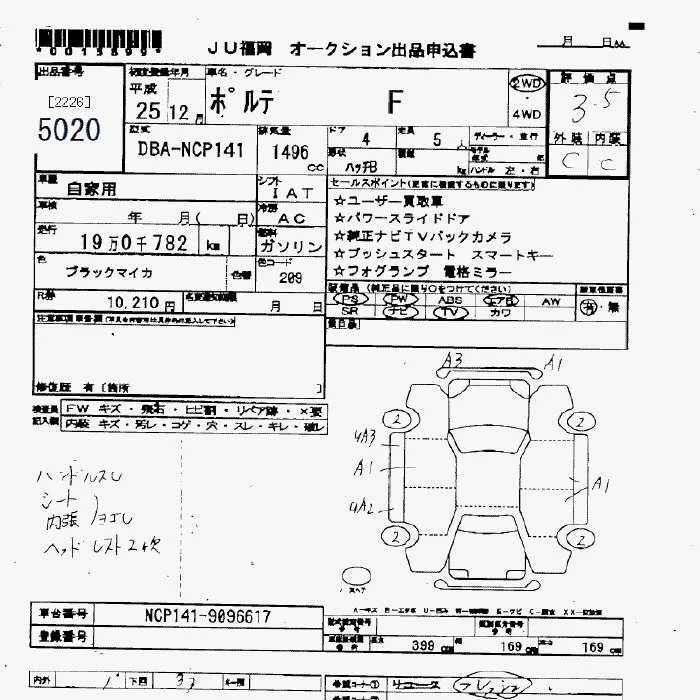 *0015899*
JU福岡 オークション出品申込書
月 日
出品番号
[2226]
5020
初度登録年月
平成
25 12月
車名・グレード
ポルテ F
2WD
4WD
評価点
3.5
外装 内装
C C
型式
DBA-NCP141
排気量
1496 cc
ドア 4
定員 5
形状
kg
ハンドル 左・右
車歴
自家用
シフト
IAT
車検
年 月( 日)
冷房
AC
走行
19万0千782 km
燃料
ガソリン
色
ブラックマイカ
色替
色コード
209
R券
10,210円
月 日
セールスポイント(正常に機能するものに限ります)
☆ユーザー買取車
☆パワースライドドア
☆純正ナビTVバックカメラ
☆プッシュスタート スマートキー
☆フォグランプ 電格ミラー
装備品 (純正品に限り○をつけてください)
PS PW ABS エアB AW
SR ナビ TV カワ
有・無
修復歴 有 [箇所 ]
検査員
記入欄
FW キズ・飛石・ヒビ割・リペア跡・×要
内装 キズ・汚レ・コゲ・穴・スレ・キレ・破レ
A3 A1
2 2
4A3
A1
A1
4A2
2 2
ハンドルスレ
シート
内張 ヨゴレ
ヘッドレスト2欠
スペア
車台番号
NCP141-9096617
登録番号
399 cm 169 cm 169 cm
内外 1 下回 37